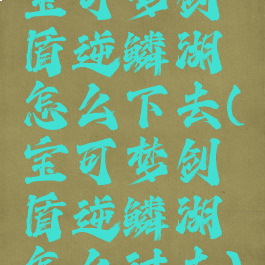 宝可梦剑
盾逆鳞湖
怎么下去(
宝可梦剑
盾逆鳞湖
怎么过去)